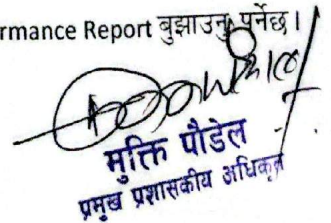 rmance Report बुझाउनु पर्नेछ।
मुक्ति पौडेल
प्रमुख प्रशासकीय अधिकृत